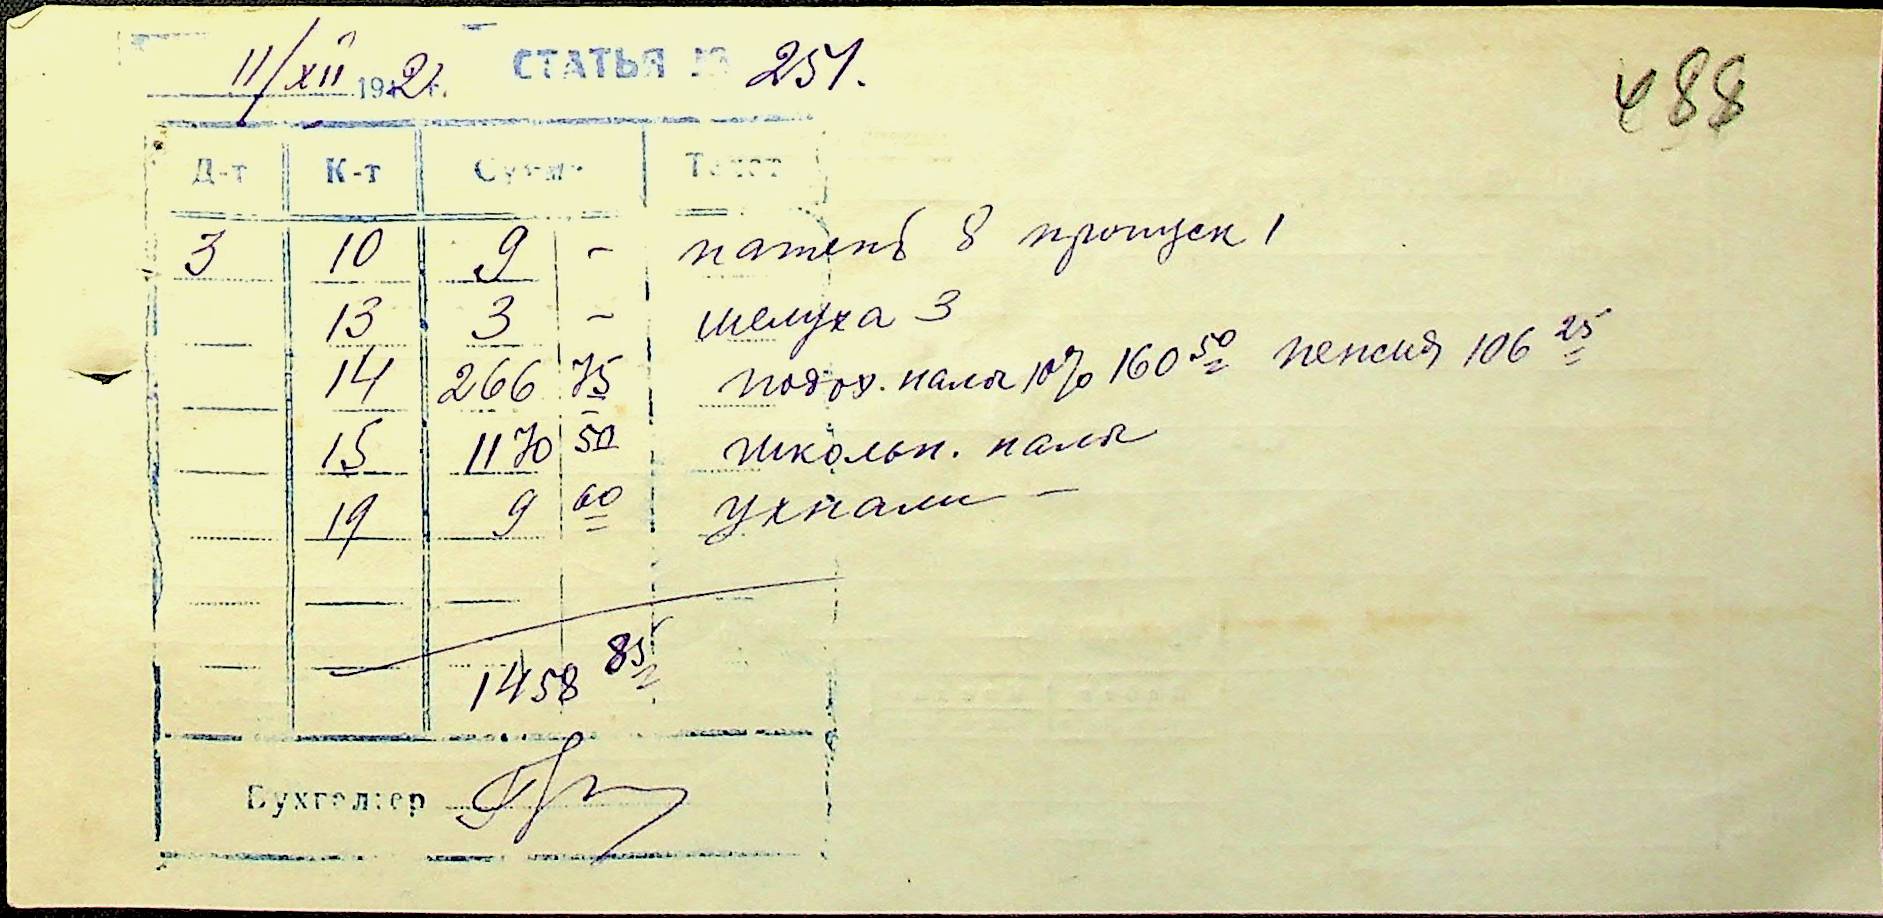 11/XII 1942 г. СТАТЬЯ № 251.
488
Д-т К-т Сумма Текст
3 10 9 - патент 8 пропуск 1
13 3 - шелуха 3
14 266 75 подох. налог 10% 160 50 пенсия 106 25
15 1170 50 школьн. налог
19 9 60 ухнали -
1458 85
Бухгалтер